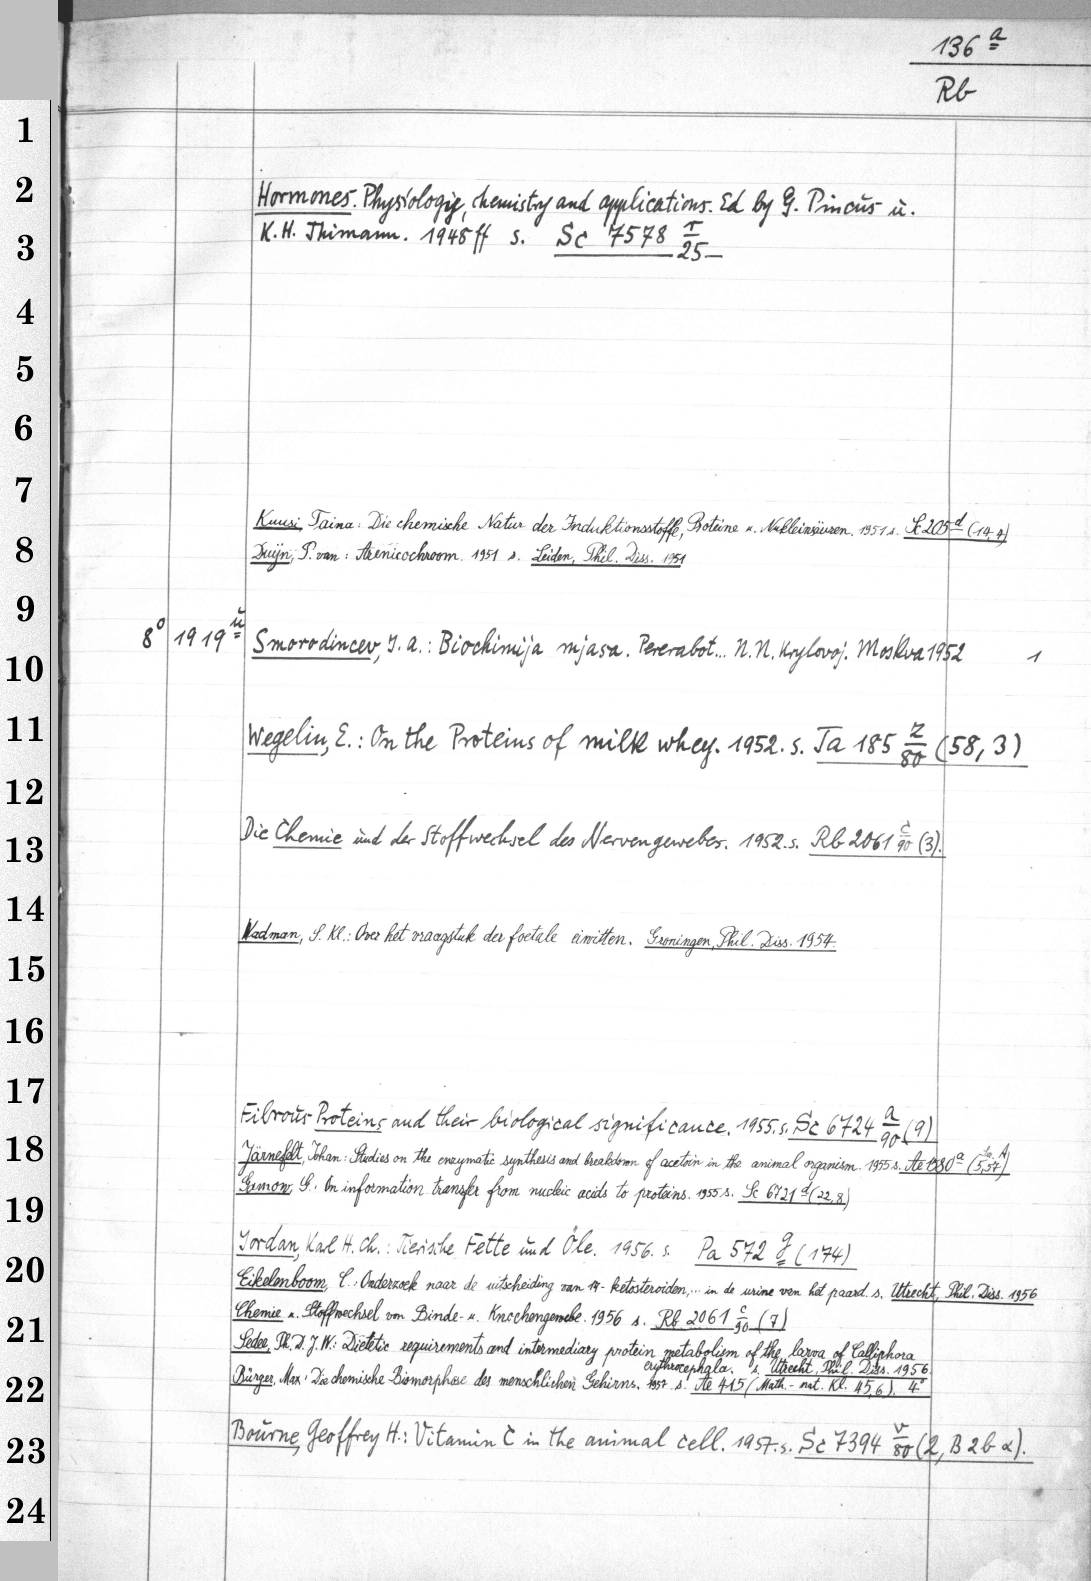 136 a
Rb
1
2
Hormones. Physiologie, chemistry and applications. Ed by G. Pincus u.
3
K. H. Thimann. 1948 ff s. Sc 7578 I/25
4
5
6
7
Kuusi, Taina: Die chemische Natur der Induktionsstoffe, Proteine u. Nukleinsäuren. 1951 s. Sc 205 d (14,4)
8
Duijn, P. van: Arenicochroom. 1951 s. Leiden, Phil. Diss. 1951
9
8° 1919 u Smorodincev, J. A.: Biochimija mjasa. Pererabot... N. N. Krylovoj. Moskva 1952 1
10
11
Wegelin, E.: On the Proteins of milk whey. 1952. s. Ta 185 z/80 (58, 3)
12
Die Chemie und der Stoffwechsel des Nervengewebes. 1952. s. Rb 2061 c/90 (3).
13
14
Wadman, S. Kl.: Over het vraagstuk der foetale eiwitten. Groningen, Phil. Diss. 1954.
15
16
17
Fibrous Proteins and their biological significance. 1955. s. Sc 6724 a/90 (9)
18
Järnefelt, Johan: Studies on the enzymatic synthesis and breakdown of acetoin in the animal organism. 1955 s. Ae 1380 a (5,57)
Gamow, G. On information transfer from nucleic acids to proteins. 1955 s. Sc 6721 d (22,8)
19
Jordan, Karl H. Ch.: Tierische Fette und Öle. 1956. s. Pa 572 g (174)
20
Eikelenboom, C.: Onderzoek naar de uitscheiding van 17-ketosteroiden,... in de urine van het paard. s. Utrecht, Phil. Diss. 1956
Chemie u. Stoffwechsel von Binde- u. Knochengewebe. 1956 s. Rb 2061 c/90 (7)
21
Sedee, Ph. D. J. W.: Dietetic requirements and intermediary protein metabolism of the larva of Calliphora
erythrocephala. s. Utrecht, Phil. Diss. 1956.
22
Bürger, Max: Die chemische Biomorphose des menschlichen Gehirns. 1957 s. Ae 415 (Math.-nat. Kl. 45,6). 4°
23
Bourne, Geoffrey H.: Vitamin C in the animal cell. 1957. s. Sc 7394 v/80 (2, B 2 b α).
24